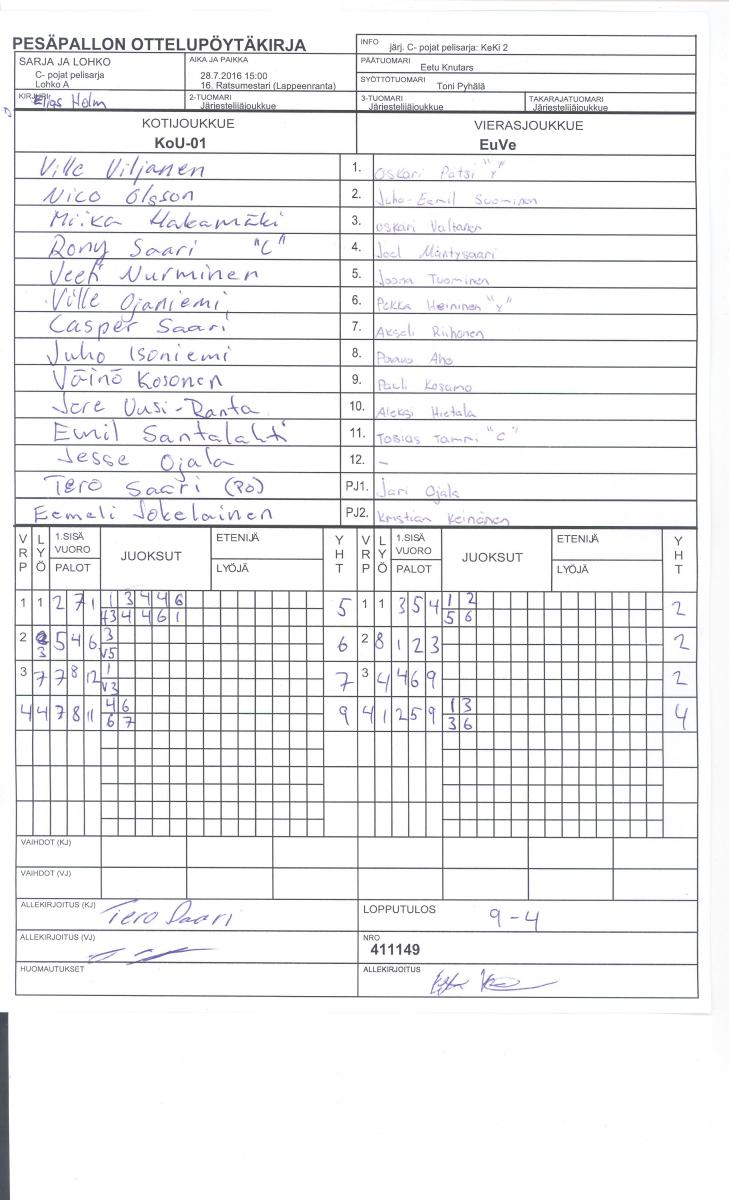 PESÄPALLON OTTELUPÖYTÄKIRJA
INFO järj. C- pojat pelisarja: KeKi 2
SARJA JA LOHKO
C- pojat pelisarja
Lohko A
AIKA JA PAIKKA
28.7.2016 15:00
16. Ratsumestari (Lappeenranta)
PÄÄTUOMARI
Eetu Knutars
SYÖTTÖTUOMARI
Toni Pyhälä
KIRJURI Elias Holm
2-TUOMARI
Järjestelijäjoukkue
3-TUOMARI
Järjestelijäjoukkue
TAKARAJATUOMARI
Järjestelijäjoukkue
KOTIJOUKKUE VIERASJOUKKUE
KoU-01 EuVe
Ville Viljanen 1. Oskari Patsi "Y"
Nico Olsson 2. Juho-Eemil Suominen
Miika Hakamäki 3. Oskari Valtanen
Rony Saari "C" 4. Joel Mäntysaari
Veeti Nurminen 5. Joona Tuominen
Ville Ojaniemi 6. Pekka Heininen "Y"
Casper Saari 7. Akseli Riihonen
Juho Isoniemi 8. Paavo Aho
Väinö Kosonen 9. Pauli Kosamo
Jere Uusi-Ranta 10. Aleksi Hietala
Emil Santalahti 11. Tobias Tammi "C"
Jesse Ojala 12. –
Tero Saari (PO) PJ1. Jari Ojala
Eemeli Jokelainen PJ2. Kristian Keinänen
VRP LYÖ 1.SISÄ VUORO PALOT JUOKSUT ETENIJÄ LYÖJÄ YHT VRP LYÖ 1.SISÄ VUORO PALOT JUOKSUT ETENIJÄ LYÖJÄ YHT
1 1 2 7 1 1 3 4 4 6 5 1 1 3 5 4 1 2 2
4 4 6 1 5 6
2 3 5 4 6 3 6 2 8 1 2 3 2
V5
3 7 7 8 12 1 7 3 4 4 6 9 2
V3
4 4 7 8 11 4 6 9 4 1 2 5 9 1 3 4
6 7 3 6
VAIHDOT (KJ)
VAIHDOT (VJ)
ALLEKIRJOITUS (KJ) Tero Saari
LOPPUTULOS 9-4
ALLEKIRJOITUS (VJ)
NRO
411149
HUOMAUTUKSET
ALLEKIRJOITUS